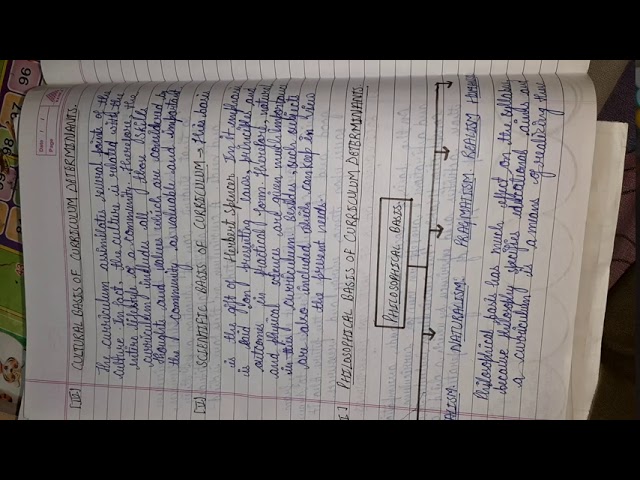 [III] CULTURAL BASIS OF CURRICULUM DETERMINANTS.
The curriculum assimilates several points of the
culture. In fact the culture is related with the
entire lifestyle of a community. Therefore, the
curriculum includes all those skills
thought and values which are considered by
the community as valuable and important
SCIENTIFIC BASIS OF CURRICULUM → this basis
is the gift of Herbert Spencer. In it emphasis
is laid on presenting laws, principles and
outcome in practical form. Therefore, natural
and physical sciences are given more importance
in this curriculum besides, such subjects
are also included which can keep in view
the present needs.
PHILOSOPHICAL BASES OF CURRICULUM DETERMINANTS
PHILOSOPHICAL BASIS.
NATURALISM PRAGMATISM REALISM
Philosophical basis has much effect on the syllabus
because philosophy specifies educational aims and
a curriculum is a means of realizing them
Date
Page
96
98